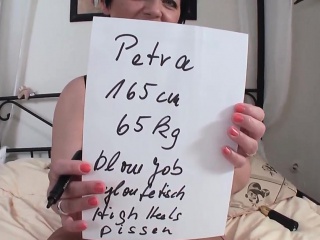 Petra
165cm
65kg
blowjob
nylonfetisch
High Heels
pissen